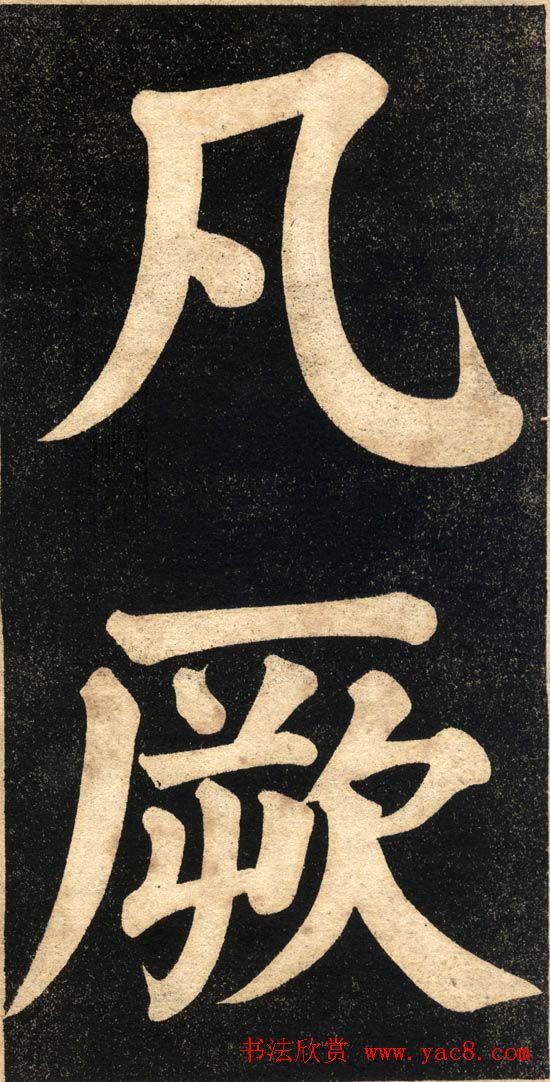 凡
厥
书法欣赏 www.yac8.com